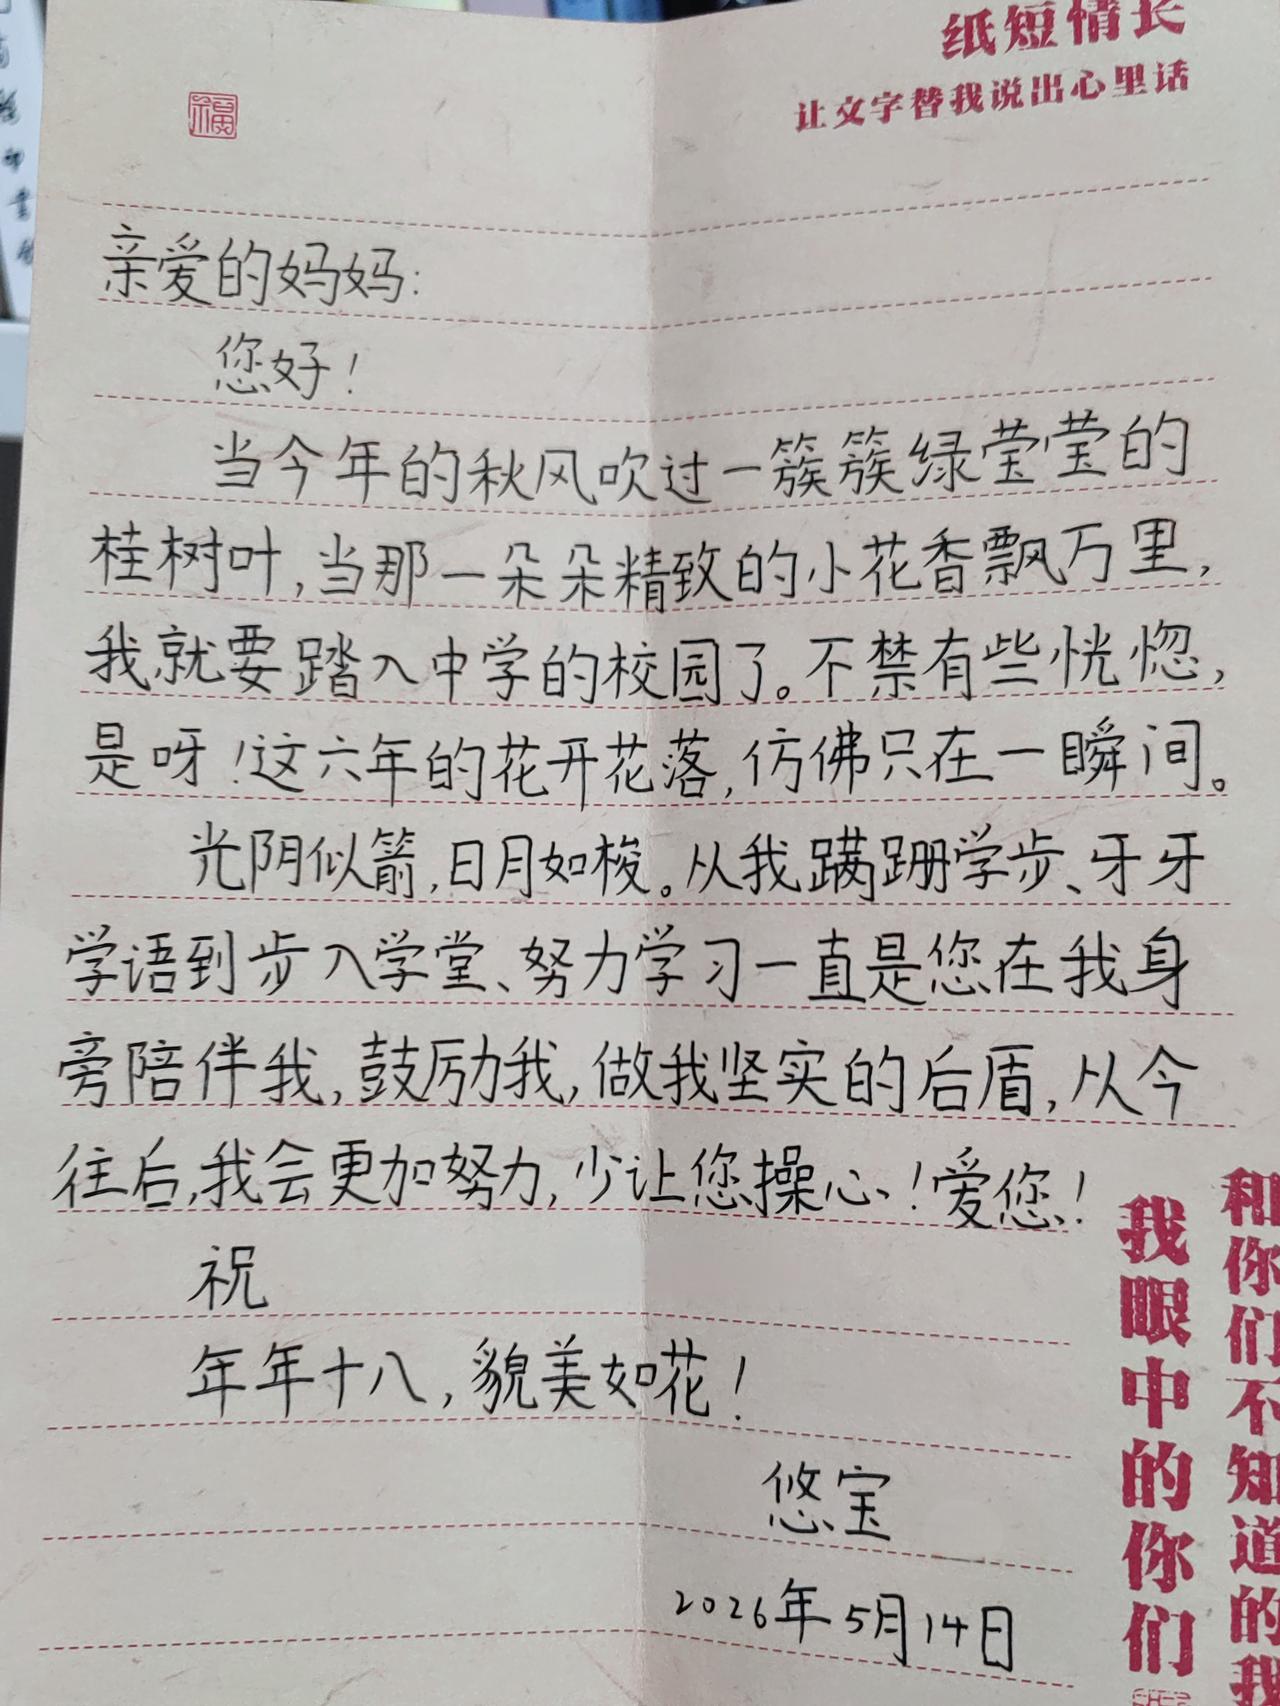 纸短情长
让文字替我说出心里话
福
亲爱的妈妈:
您好!
当今年的秋风吹过一簇簇绿莹莹的
桂树叶,当那一朵朵精致的小花香飘万里,
我就要踏入中学的校园了。不禁有些恍惚,
是呀!这六年的花开花落,仿佛只在一瞬间。
光阴似箭,日月如梭。从我蹒跚学步、牙牙
学语到步入学堂、努力学习一直是您在我身
旁陪伴我,鼓励我,做我坚实的后盾,从今
往后,我会更加努力,少让您操心!爱您!
祝
年年十八,貌美如花!
悠宝
2026年5月14日
和你们不知道的我
我眼中的你们